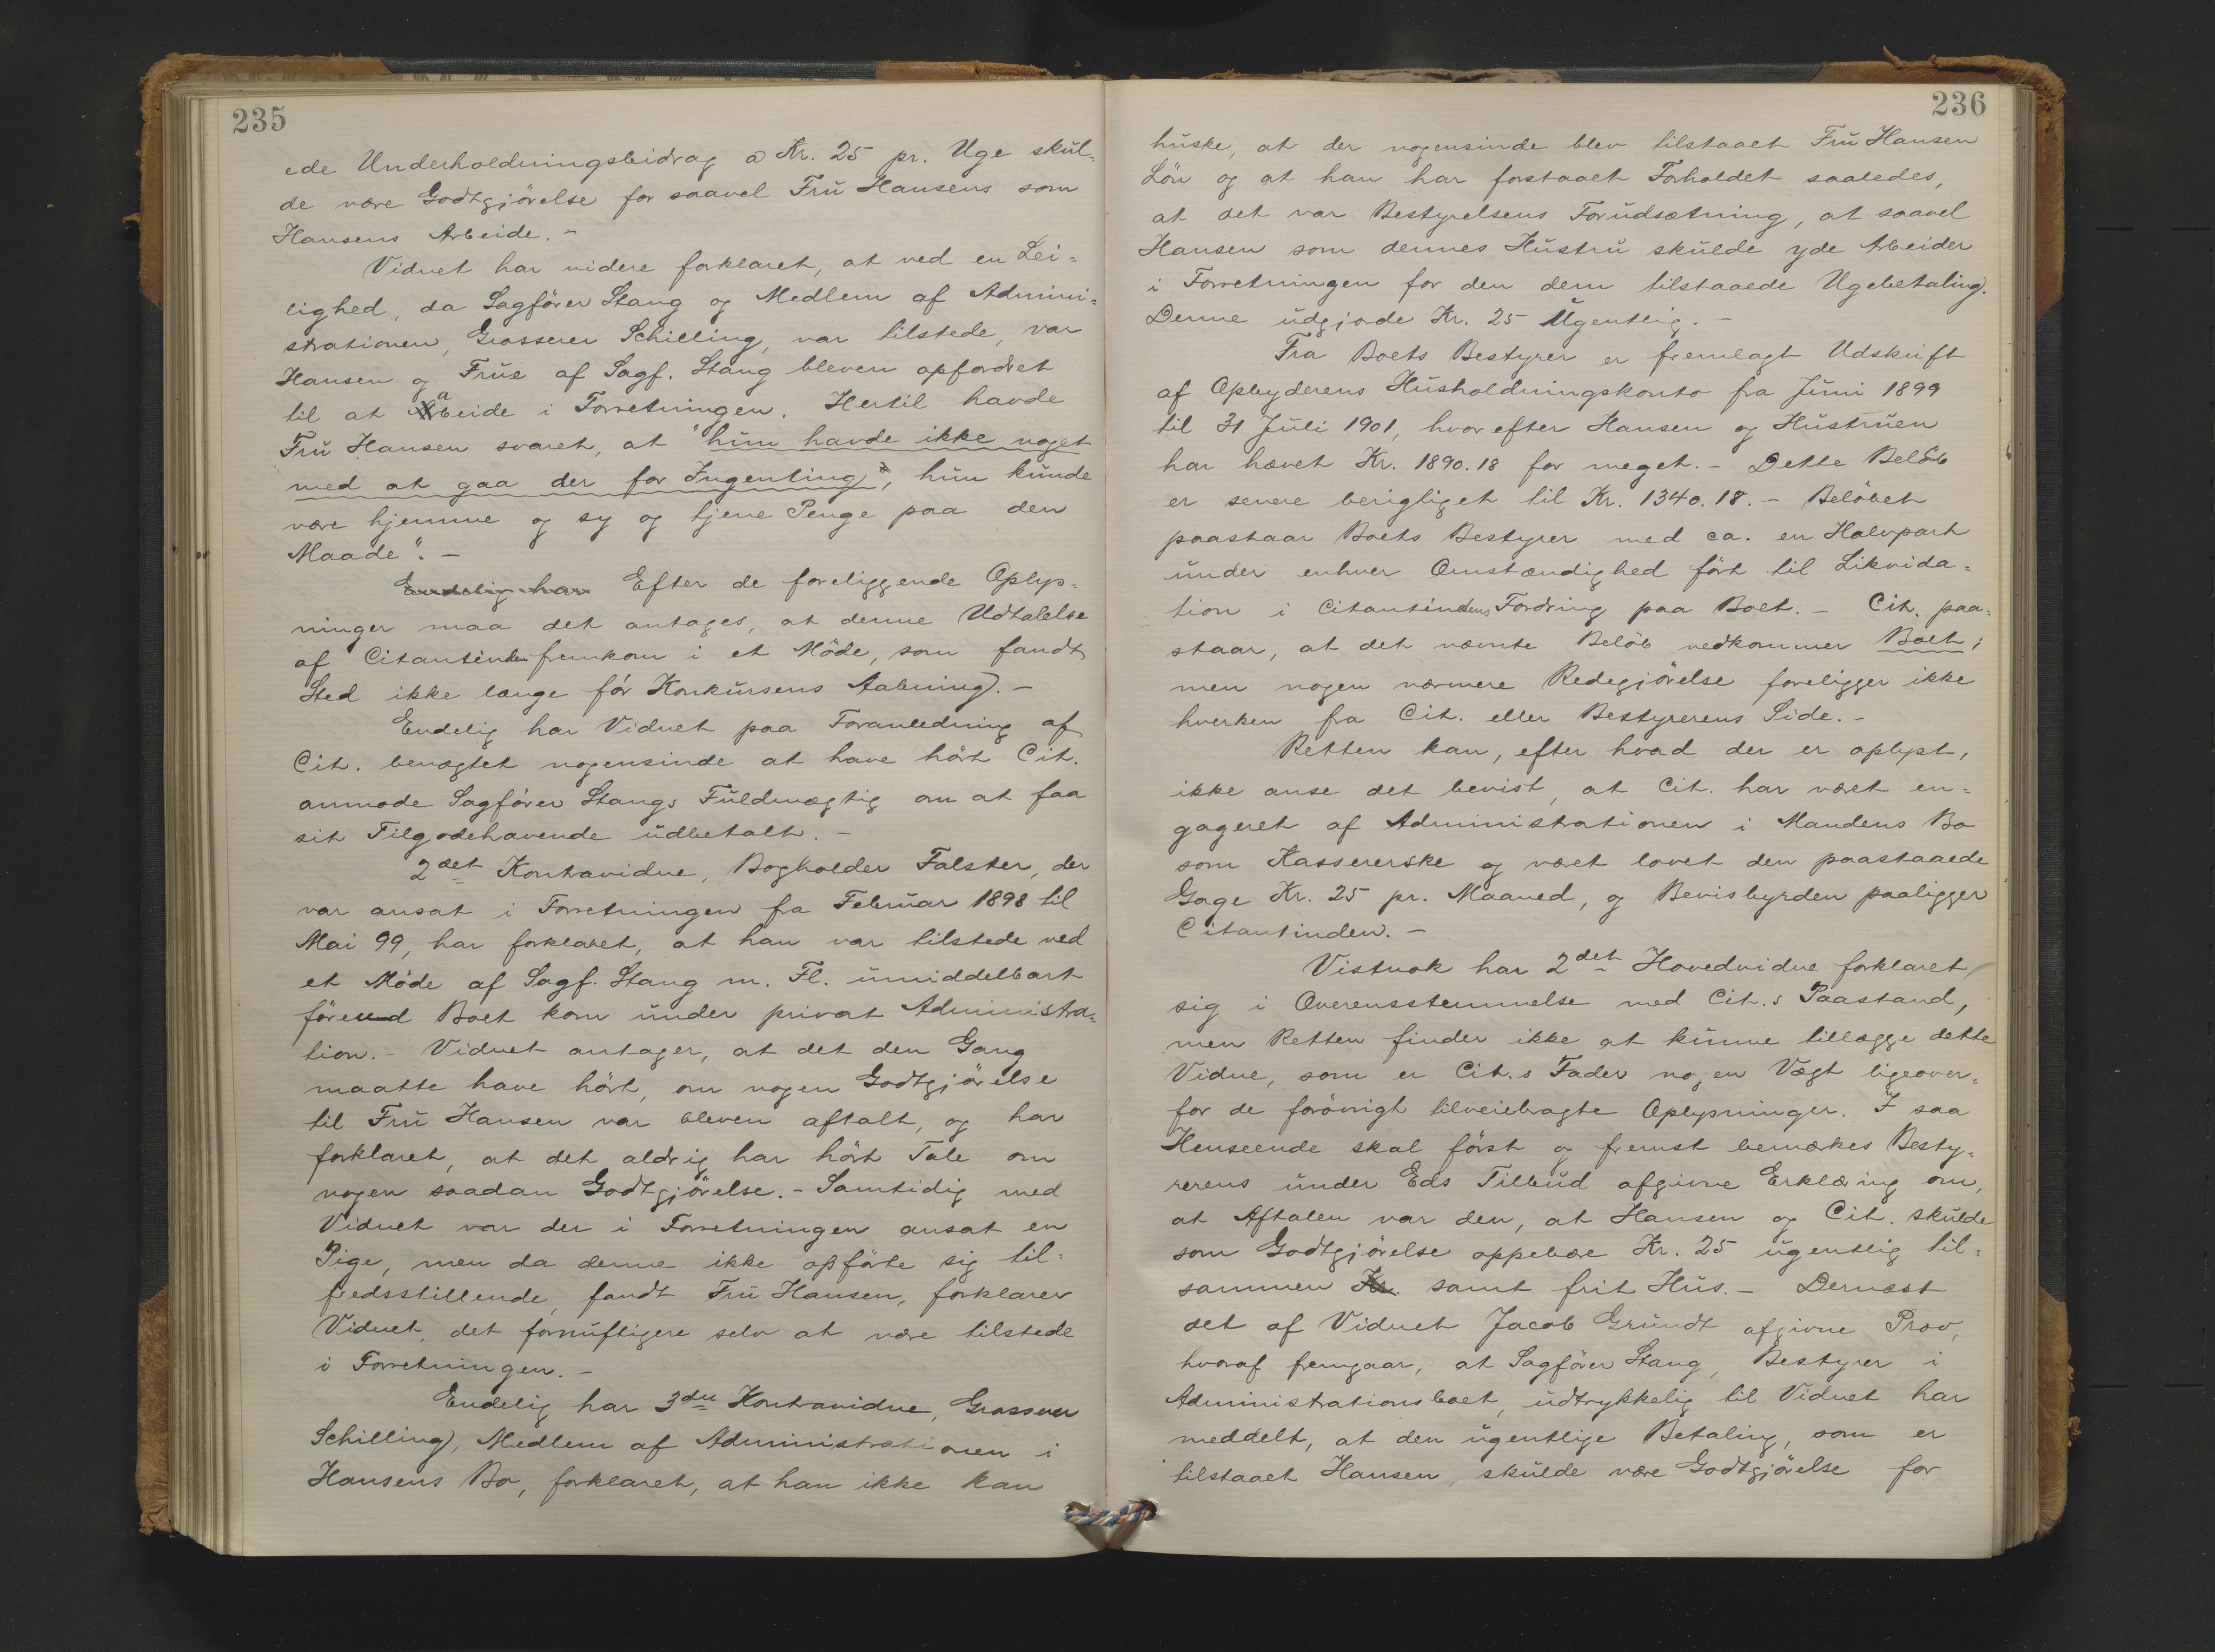 235
ede Underholdningsbidrag a Kr. 25 pr. Uge skul=
de være Godtgjörelse for saavel Fru Hansens som
Hansens Arbeide. –
Vidnet har videre forklaret, at ved en Lei=
lighed, da Sagförer Stang og Medlem af Admini=
strationen, Grosserer Schilling, var tilstede, var
Hansen og Frue af Sagf. Stang bleven opfordret
til at arbeide i Forretningen. Hertil havde
Fru Hansen svaret, at "hun havde ikke noget
med at gaa der for Ingenting", hun kunde
være hjemme og sy og tjene Penge paa den
Maade". –
Endelig har Efter de foreliggende Oplys=
ninger maa det antages, at denne Udtalelse
af Citantinden fremkom i et Möde, som fandt
Sted ikke længe för Konkursens Aabning. –
Endelig har Vidnet paa Foranledning af
Cit. benægtet nogensinde at have hört Cit.
anmode Sagförer Stangs Fuldmægtig om at faa
sit Tilgodehavende udbetalt. –
2det Kontravidne, Bogholder Falster, der
var ansat i Forretningen fra Februar 1898 til
Mai 99, har forklaret, at han var tilstede ved
et Möde af Sagf. Stang m. Fl. umiddelbart
förend Boet kom under privat Administra=
tion. – Vidnet antager, at det den Gang
maatte have hört, om nogen Godtgjörelse
til Fru Hansen var bleven aftalt, og har
forklaret, at det aldrig har hört Tale om
nogen saadan Godtgjörelse. – Samtidig med
Vidnet var der i Forretningen ansat en
Pige, men da denne ikke opförte sig til=
fredsstillende, fandt Fru Hansen, forklarer
Vidnet, det fornuftigere selv at være tilstede
i Forretningen. –
Endelig har 3die Kontravidne, Grosserer
Schilling, Medlem af Administrationen i
Hansens Bo, forklaret, at han ikke kan
236
huske, at der nogensinde blev tilstaaet Fru Hansen
Lön og at han har forstaaet Forholdet saaledes,
at det var Bestyrelsens Forudsætning, at saavel
Hansen som dennes Hustru skulde yde Arbeider
i Forretningen for den dem tilstaaede Ugebetaling.
Denne udgjorde Kr. 25 Ugentlig. –
Fra Boets Bestyrer er fremlagt Udskrift
af Opbyderens Husholdningskonto fra Juni 1899
til 31 Juli 1901, hvorefter Hansen og Hustruen
har hævet Kr. 1890.18 for meget. – Dette Belöb
er senere berigtiget til Kr. 1340.18. – Belöbet
paastaar Boets Bestyrer med ca. en Halvpart
under enhver Omstændighed fört til Likvida=
tion i Citantindens Fordring paa Boet. – Cit. paa=
staar, at det nævnte Belöb vedkommer Boet;
men nogen nærmere Redegjörelse foreligger ikke
hverken fra Cit. eller Bestyrerens Side. –
Retten kan, efter hvad der er oplyst,
ikke anse det bevist, at Cit. har været en=
gageret af Administrationen i Mandens Bo
som Kassererske og været lovet den paastaaede
Gage Kr. 25 pr. Maaned, og Bevisbyrden paaligger
Citantinden. –
Vistnok har 2det Hovedvidne forklaret
sig i Overensstemmelse med Cit.s Paastand,
men Retten finder ikke at kunne tillægge dette
Vidne, som er Cit.s Fader nogen Vægt ligeover=
for de forövrigt tilveiebragte Oplysninger. I saa
Henseende skal först og fremst bemærkes Besty=
rerens under Eds Tilbud afgivne Erklæring om,
at Aftalen var den, at Hansen og Cit. skulde
som Godtgjörelse oppebære Kr. 25 ugentlig til=
sammen Kr. samt frit Hus. – Dernæst
det af Vidnet Jacob Grundt afgivne Prov,
hvoraf fremgaar, at Sagförer Stang, Bestyrer i
Administrationsboet, udtrykkelig til Vidnet har
meddelt, at den ugentlige Betaling, som er
tilstaaet Hansen, skulde være Godtgjörelse for